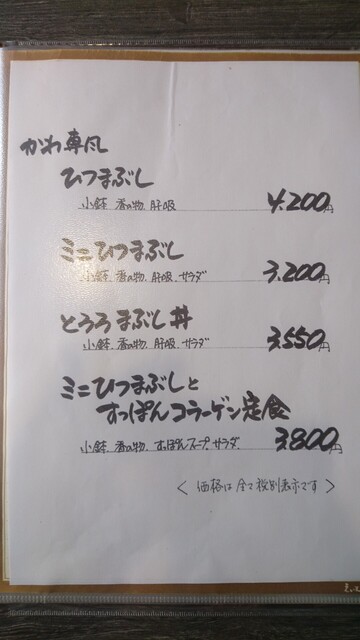 かわ専風
ひつまぶし
小鉢、香の物、肝吸 4,200円
ミニひつまぶし
小鉢、香の物、肝吸、サラダ 3,200円
とろろまぶし丼
小鉢、香の物、肝吸、サラダ 3,550円
ミニひつまぶしと
すっぽんコラーゲン定食
小鉢、香の物、すっぽんスープ、サラダ 3,800円
<価格は全て税別表示です>